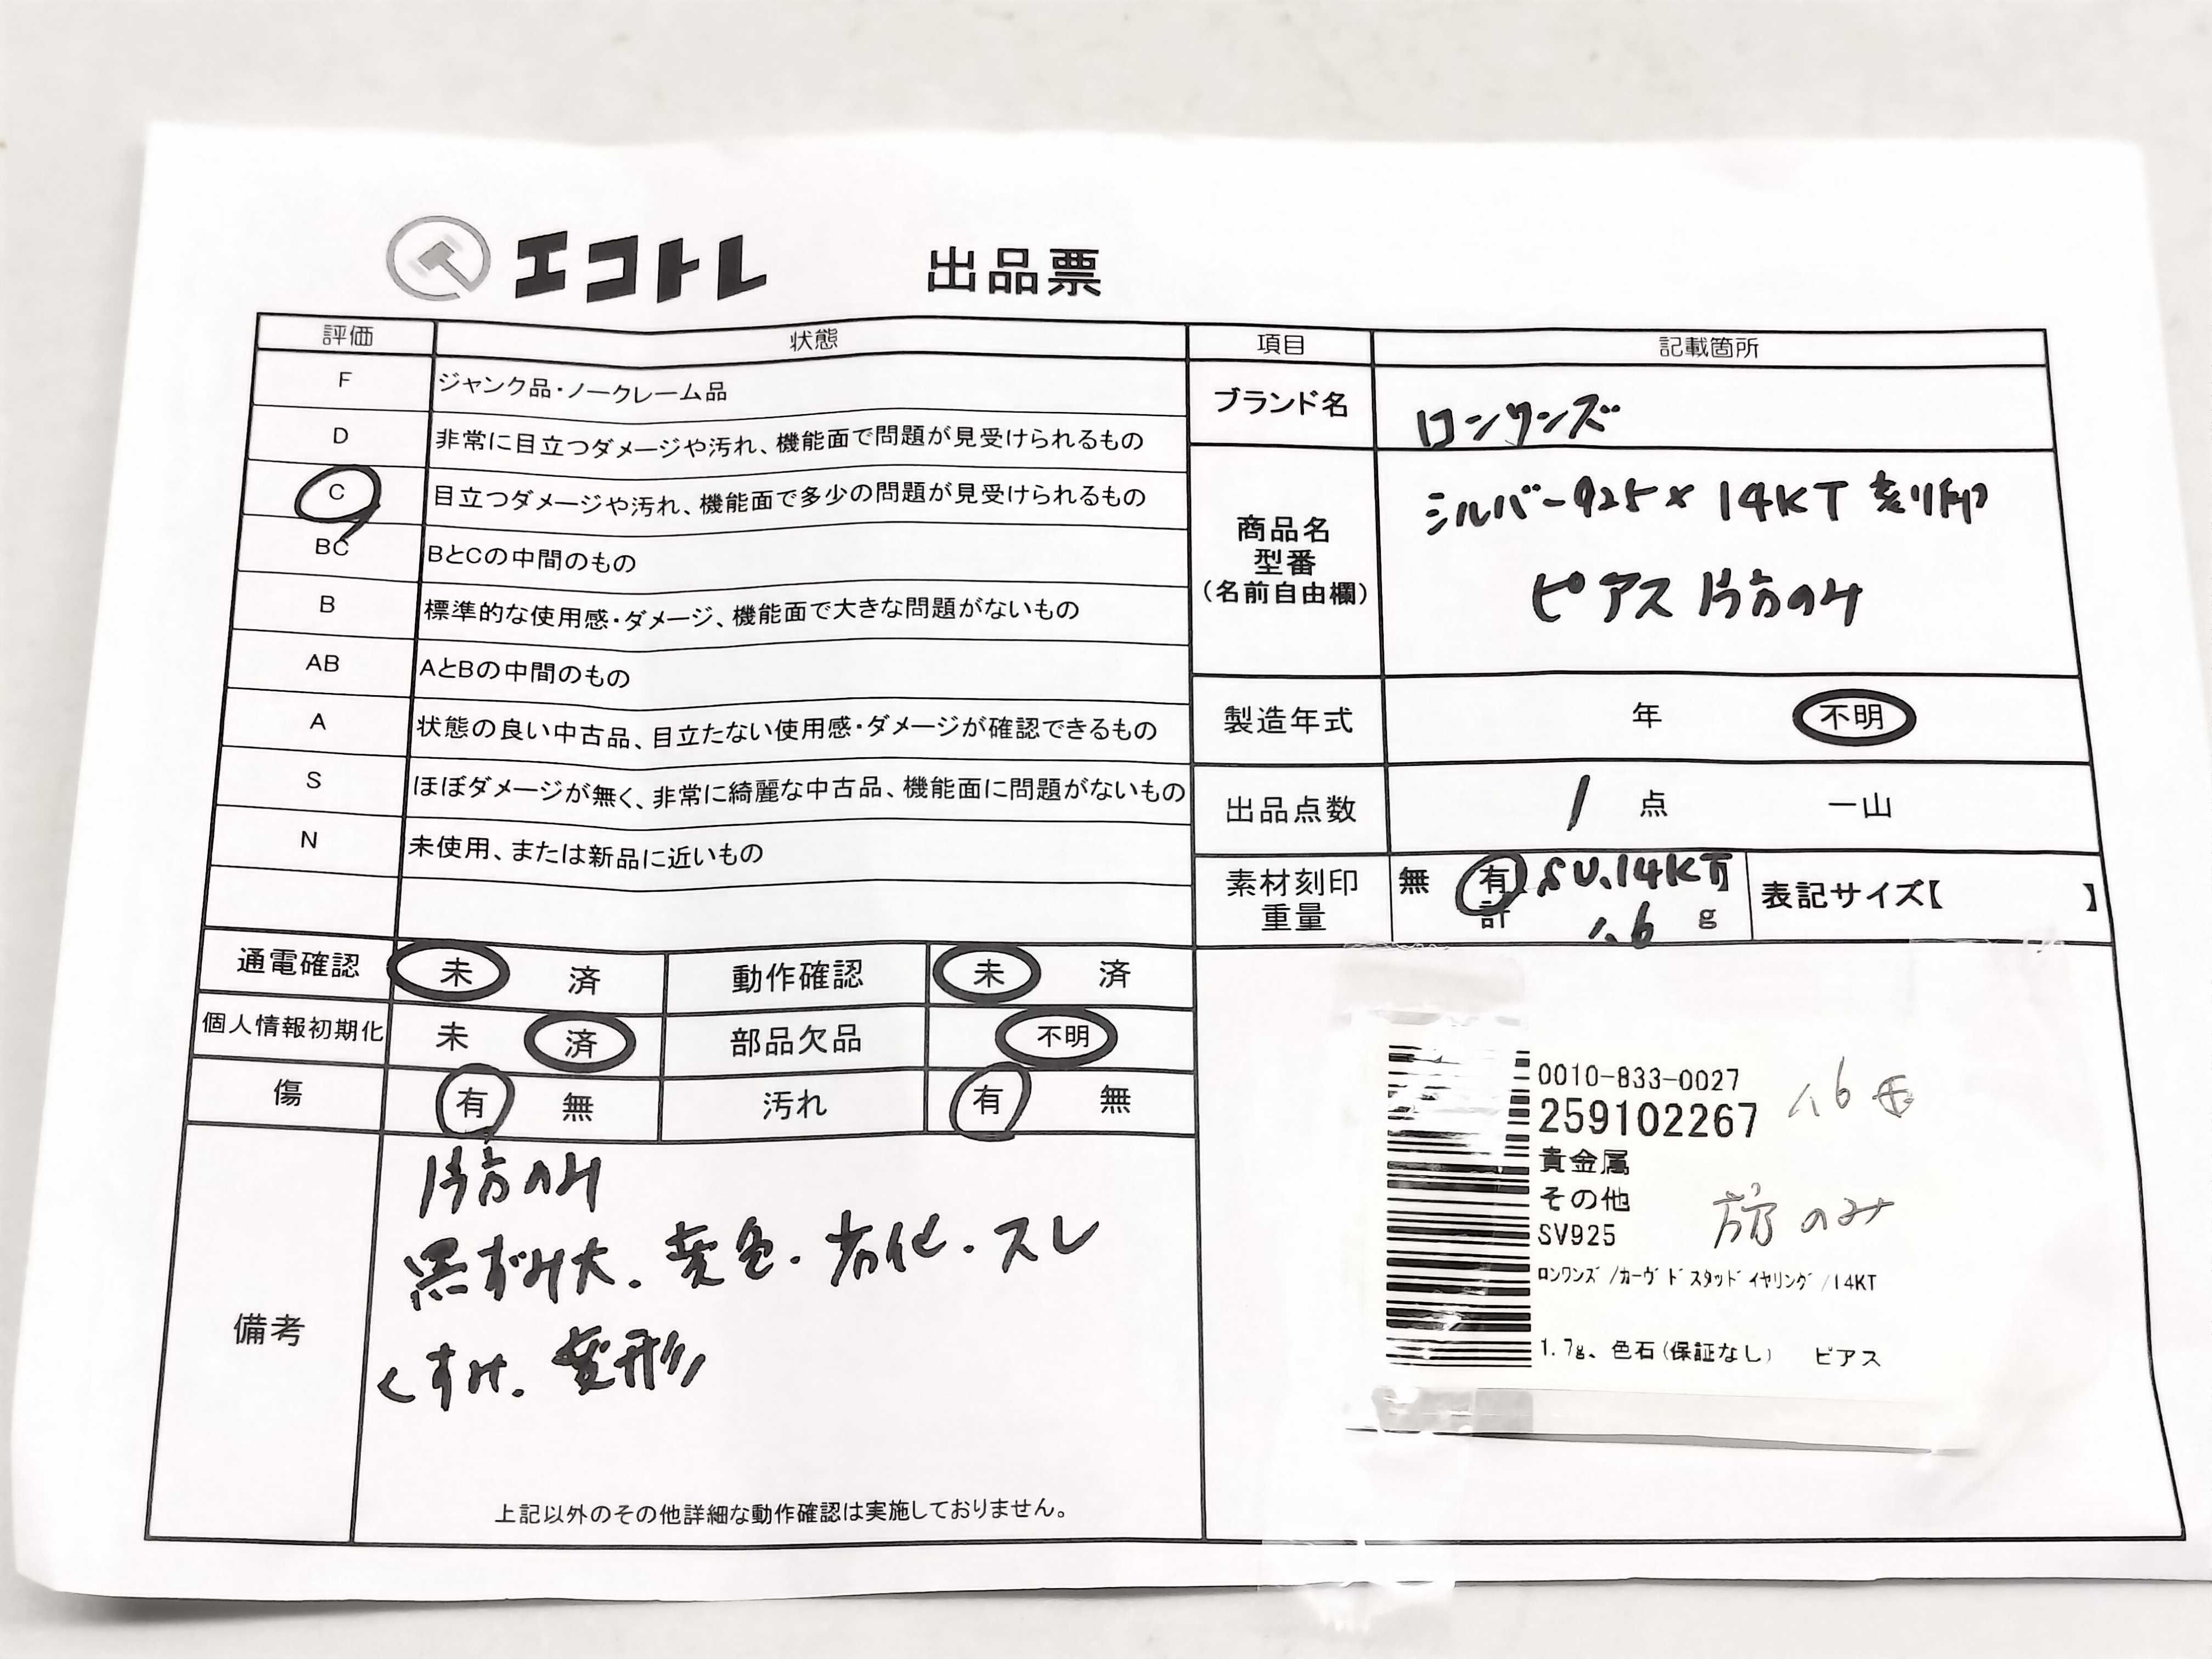 エコトレ 出品票
評価 状態
F ジャンク品・ノークレーム品
D 非常に目立つダメージや汚れ、機能面で問題が見受けられるもの
C 目立つダメージや汚れ、機能面で多少の問題が見受けられるもの
BC BとCの中間のもの
B 標準的な使用感・ダメージ、機能面で大きな問題がないもの
AB AとBの中間のもの
A 状態の良い中古品、目立たない使用感・ダメージが確認できるもの
S ほぼダメージが無く、非常に綺麗な中古品、機能面に問題がないもの
N 未使用、または新品に近いもの
通電確認 未 済 動作確認 未 済
個人情報初期化 未 済 部品欠品 不明
傷 有 無 汚れ 有 無
備考
片方のみ
黒ずみ大.変色.劣化.スレ
くすみ.変形
上記以外のその他詳細な動作確認は実施しておりません。
項目 記載箇所
ブランド名 ロンワンズ
商品名
型番
(名前自由欄)
シルバー925×14KT刻印
ピアス片方のみ
製造年式 年 不明
出品点数 1 点 一山
素材刻印 無 有 SV.14KT
重量 計 1.6 g
表記サイズ【 】
0010-833-0027
259102267
1.6
貴金属
その他
SV925
片方のみ
ロンワンズ/カーヴドスタッドイヤリング/14KT
1.7g、色石(保証なし) ピアス